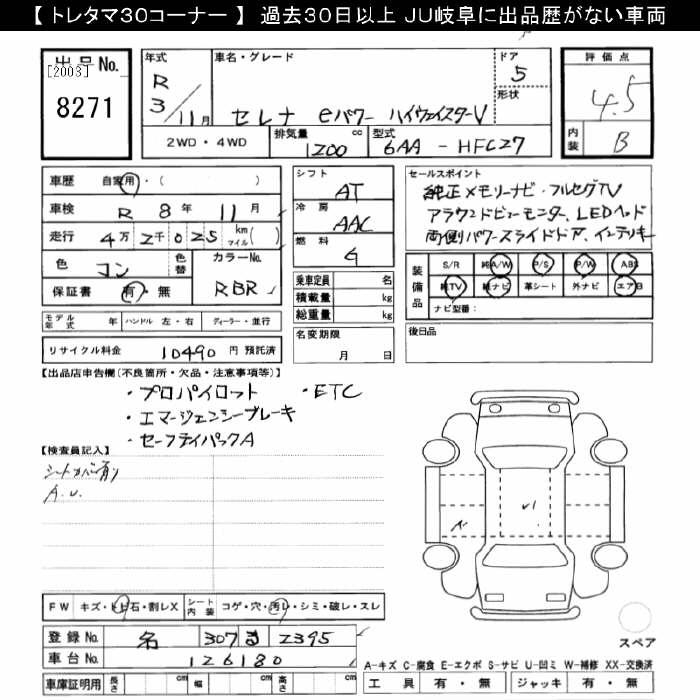 【 トレタマ３０コーナー 】 過去３０日以上 ＪＵ岐阜に出品歴がない車両
出品No.
[2003]
8271
年式
R 3/11月
車名・グレード
セレナ eパワー ハイウェイスターV
ドア
5
形状
評価点
4.5
内装
B
2WD・4WD
排気量 1200 cc
型式 6AA - HFC27
車歴 自家用・( )
車検 R 8年 11月
走行 4万2千025 km マイル( )
色 コン 色替
カラーNo. RBR
保証書 有・無
モデル年式 年 ハンドル 左・右 ディーラー・並行
リサイクル料金 10490 円 預託済
シフト
AT
冷房
AAC
燃料
G
乗車定員 名
積載量 kg
総重量 kg
名変期限
月 日
セールスポイント
純正メモリーナビ・フルセグTV
アラウンドビューモニター、LEDヘッド
両側パワースライドドア、インテリキー
装備品
S/R 純A/W P/S P/W ABS
純TV 純ナビ 革シート 外ナビ エアB
ナビ型番：
後日品
【出品店申告欄(不良箇所・欠品・注意事項等)】
・プロパイロット ・ETC
・エマージェンシーブレーキ
・セーフティパックA
【検査員記入】
シートカバー有り
A.U.
FW キズ・トビ石・割レX シート内装 コゲ・穴・汚レ・シミ・破レ・スレ
登録No. 名 307 ま 2395
車台No. 126180
車庫証明用 長さ cm 幅 cm 高さ cm
スペア
A-キズ C-腐食 E-エクボ S-サビ U-凹ミ W-補修 XX-交換済
工具 有・無 ジャッキ 有・無